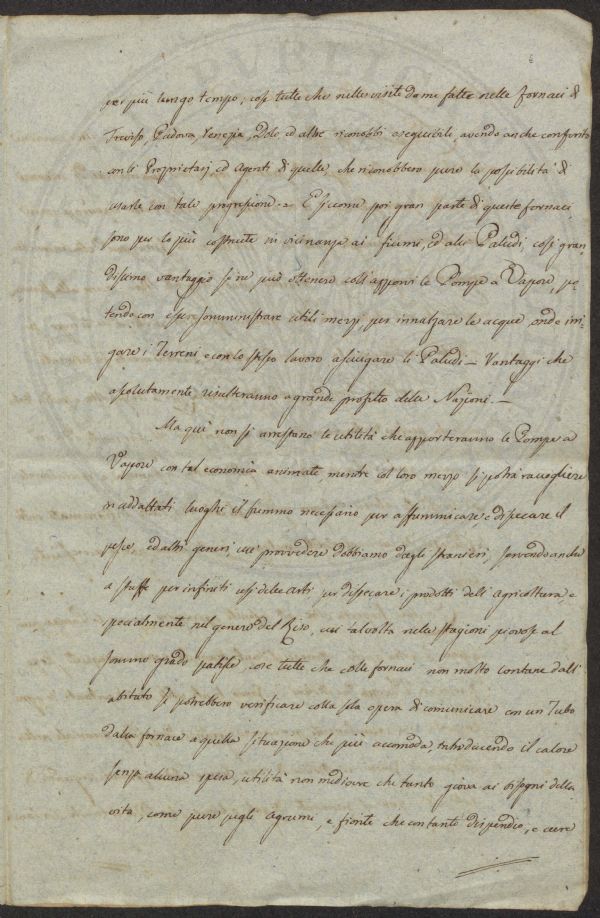 per più lungo tempo; cose tutte che nelle visite da me fatte nelle fornaci di
Treviso, Padova, Venezia, Dolo ed altre riconobbi eseguibile, avendo anche conferito
con li Proprietarj, ed Agenti di quelle, che riconobbero pure la possibilità di
usarle con tale progressione. E siccome poi gran parte di queste fornaci
sono per lo più costrutte in vicinanza ai fiumi, ed alle Paludi, così gran-
dissimo vantaggio si può ottenere coll'apporvi le Pompe a Vapore, po-
tendo con esse somministrare utili mezzi per innalzare le acque onde irri-
gare i Terreni, e con lo stesso lavoro asciugare le Paludi – Vantaggi che
assolutamente risulteranno a grande profitto della Nazione. –
Ma quì non si arrestano le utilità che apporteranno le Pompe a
Vapore con tal economia animate mentre col loro mezzo si potrà raccogliere
in addattati luoghi il fummo necessario per affummicare e dissecare il
pesce, ed altri generi, cui provvedere dobbiamo dagli stranieri, servendo anche
a stuffe per infiniti usi delle arti per dissecare i prodotti dell'agricoltura, e
specialmente nel genere del Riso, cui talvolta nelle stagioni piovose al
sommo grado patisse, cose tutte che colle fornaci non molto lontane dall'
abitato si potrebbero verificare colla sola opera di comunicare con un Tubo
dalla fornace a quella situazione che più accomoda, introducendo il calore
senza alcuna spesa, utilità non mediocre che tanto giova ai bisogni della
vita, come pure pegli Agrumi, e fiorite che con tanto dispendio, e cure